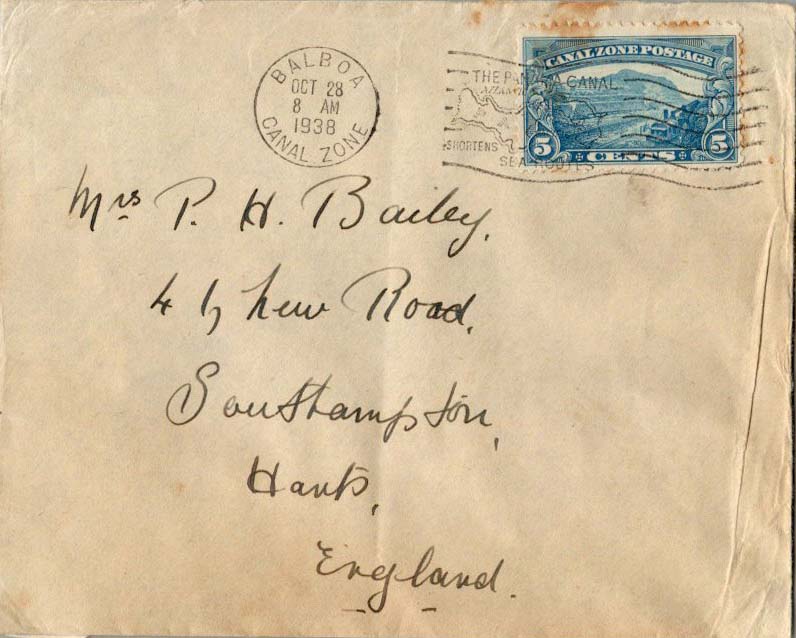 BALBOA
OCT 28
8 AM
1938
CANAL ZONE
CANAL ZONE POSTAGE
THE PANAMA CANAL
ATLANTIC
SHORTENS
SEA ROUTES
5 CENTS 5
Mrs P. H. Bailey,
New Road,
Southampton,
Hants,
England.